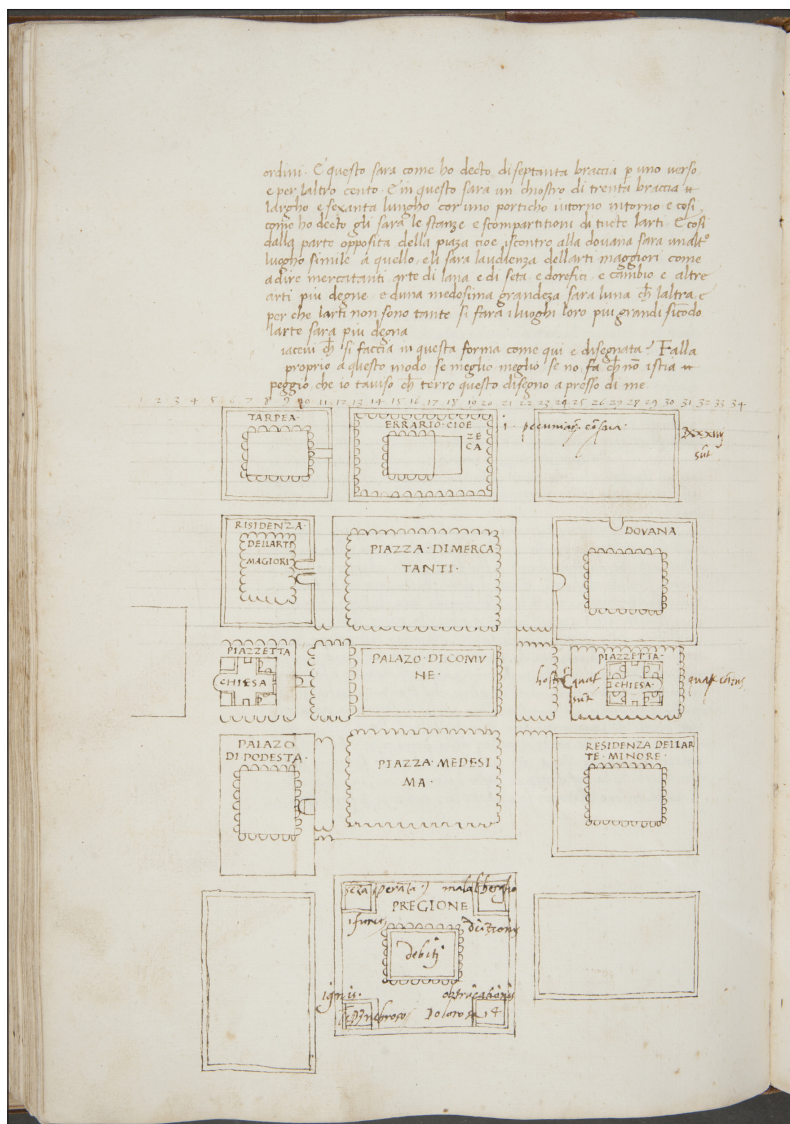 ordini. E questo sara come ho decto di septanta braccia p uno verso
e per laltro cento. E in questo sara un chiostro di trenta braccia
largho e sexanta lungho con uno porticho intorno intorno e cosi
come ho decto gli sara le stanze e scompartitioni di tucte larti. E cosi
dalla parte opposita della piaza cioe iscontro alla dovana sara unalto
luogho simile a quello. e li sara laudienza dellarti maggiori come
adire mercatanti arte di lana e di seta. e dorefici. e cambio. e altre
arti piu degne. e duna medesima grandeza sara luna ch laltra. e
per che larti non sono tante si fara i luoghi loro piu grandi sicondo
larte sara piu degna
ch si faccia in questa forma come qui e disegnata? Falla
proprio a questo modo. se meglio meglio. se no. fa ch nō istia
peggio che io taviso ch terro questo disegno apresso di me.
1 2 3 4 5 6 7 8 9 10 11 12 13 14 15 16 17 18 19 20 21 22 23 24 25 26 27 28 29 30 31 32 33 34
TARPEA·
ERRARIO·CIOE
ZE
CA
RISIDENZA·
DELLARTI
MAGIORI
PIAZZA·DI MERCA
TANTI·
DOVANA
PIAZZETTA
CHIESA
PALAZO·DI COMV
NE·
PIAZZETTA·
CHIESA·
PALAZO
DI·PODESTA·
PIAZZA·MEDESI
MA·
RESIDENZA DELLAR
TE·MINORE·
PREGIONE
debiti
ignis·